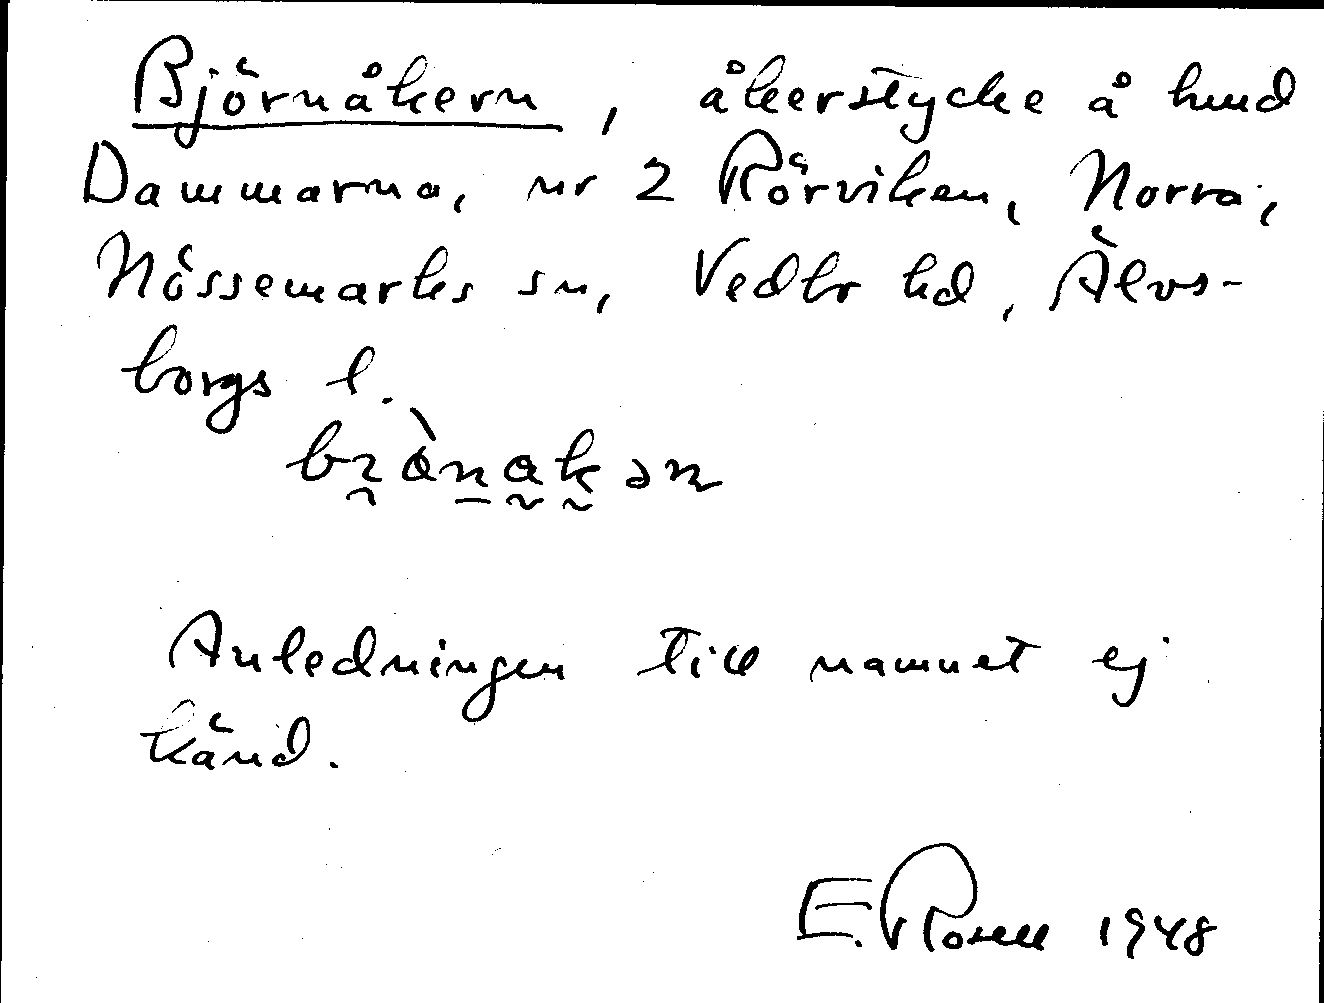 Björnåkern, åkerstycke å hmd
Dammarna, nr 2 Rörviken, Norra,
Nössemarks sn, Vedbo hd, Älvs-
borgs l.
Anledningen till namnet ej
känd.
E. Rosell 1948